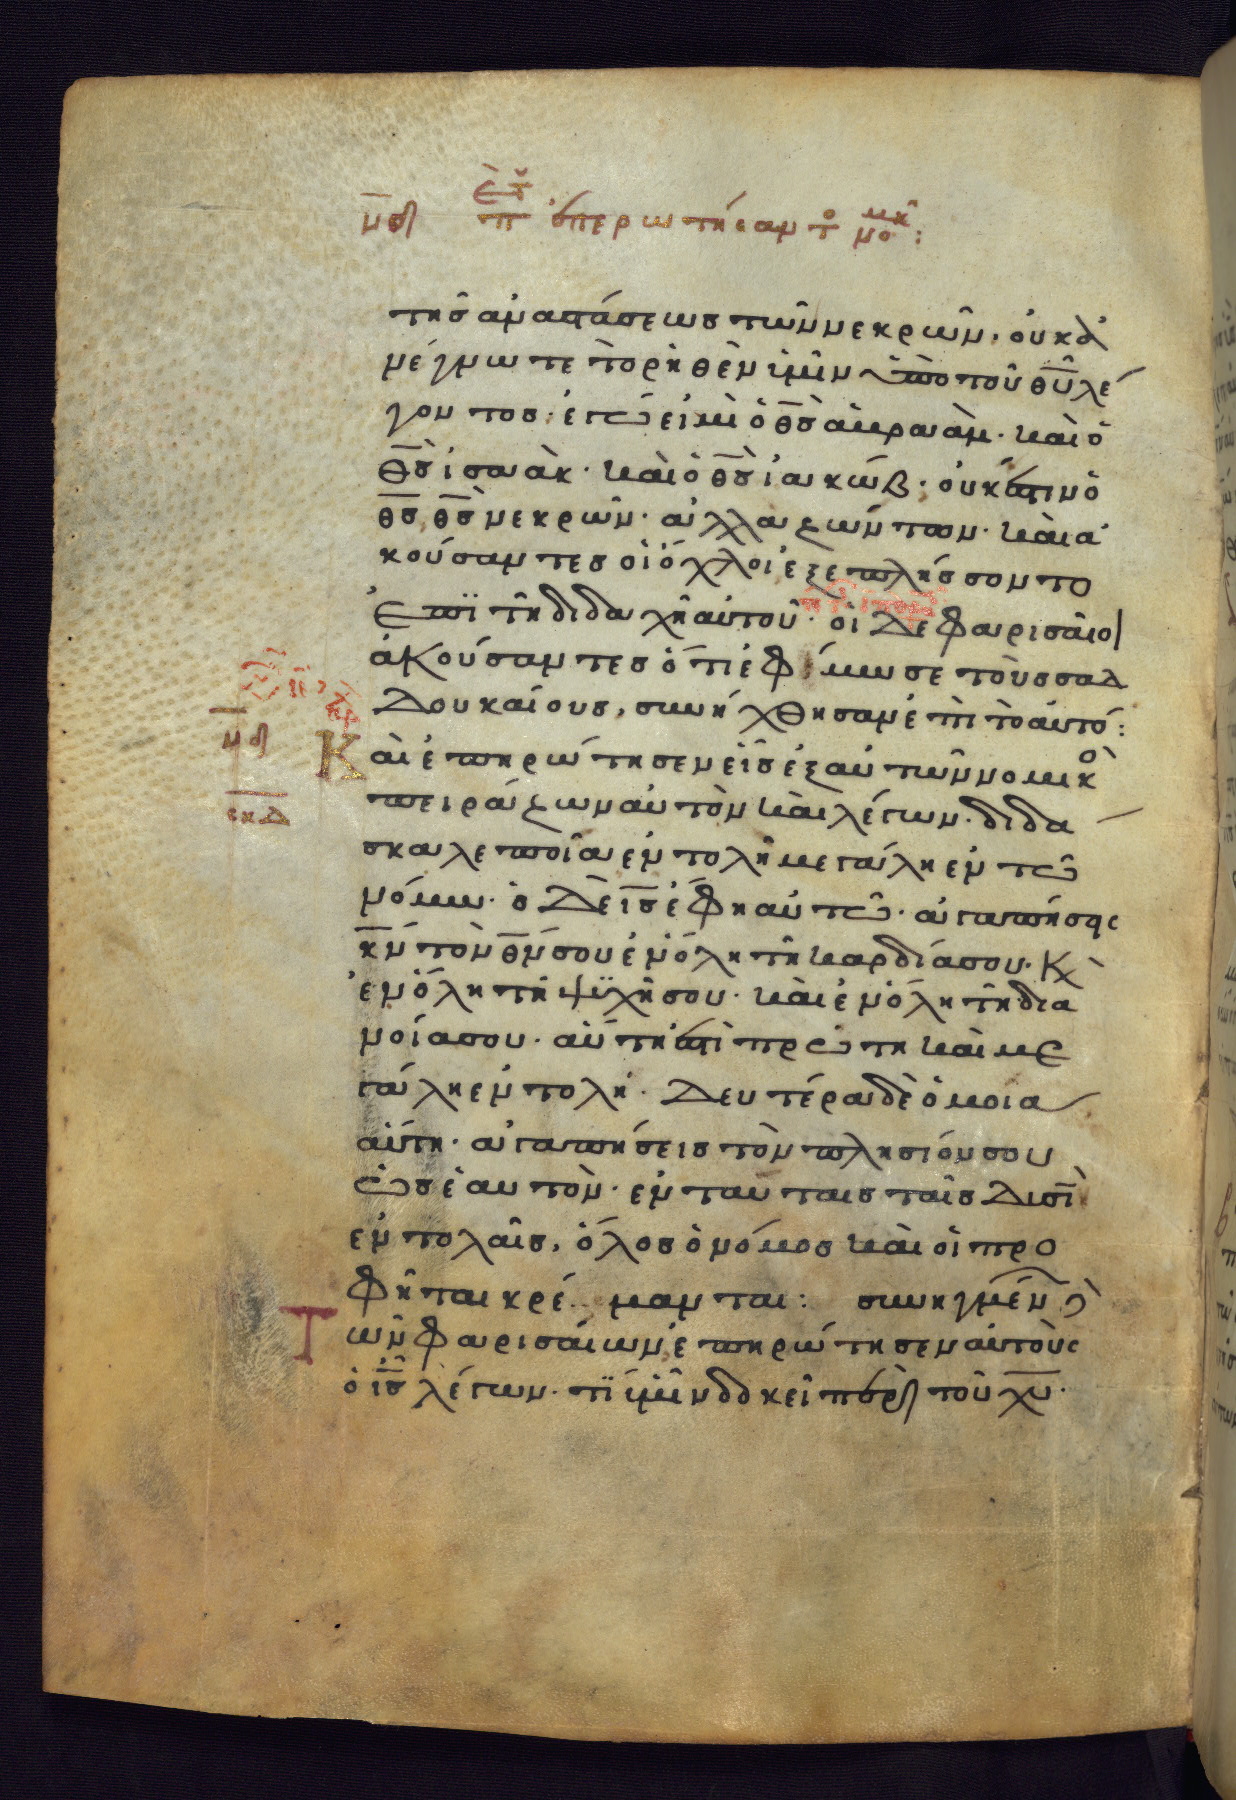 τῆς ἀναστάσεως τῶν νεκρῶν, οὐκ ἀ
νέγνωτε τὸ ῥηθὲν ὑμῖν ὑπὸ τοῦ θ̅υ̅ λέ
γοντος· ἐγώ εἰμι ὁ θ̅ς̅ ἀβραάμ· καὶ ὁ
θ̅ς̅ ἰσαάκ· καὶ ὁ θ̅ς̅ ἰακώβ· οὐκ ἔστιν ὁ
θ̅ς̅ θ̅ς̅ νεκρῶν· ἀλλὰ ζώντων· καὶ ἀ
κούσαντες οἱ ὄχλοι ἐξεπλήσσοντο
ἐπὶ τῇ διδαχῇ αὐτοῦ· οἱ δὲ φαρισαῖοι
ἀκούσαντες ὅτι ἐφίμωσε τοὺς σαδ
δουκαίους, συνήχθησαν ἐπὶ τὸ αὐτό:
Καὶ ἐπηρώτησεν εἷς ἐξ αὐτῶν νομικὸ
πειράζων αὐτὸν καὶ λέγων· διδά
σκαλε ποία ἐντολὴ μεγάλη ἐν τῷ
νόμω· ὁ δὲ ι̅ς̅ ἔφη αὐτῷ· ἀγαπήσεις
κ̅ν̅ τὸν θ̅ν̅ σου ἐν ὅλη τῇ καρδία σου· κ
ἐν ὅλη τῇ ψυχῇ σου· καὶ ἐν ὅλη τῇ δια
νοία σου· αὕτη ἐστὶ πρώτη καὶ με
γάλη ἐντολή· Δευτέρα δὲ ὁμοία
αὕτη· ἀγαπήσεις τὸν πλησίον σου
ὡς ἑαυτόν· ἐν ταύταις ταῖς δυσὶ
ἐντολαῖς, ὅλος ὁ νόμος καὶ οἱ προ
φῆται κρέμανται: συνηγμένω
Τῶν φαρισαίων ἐπηρώτησεν αὐτοὺς
ὁ ι̅ς̅ λέγων· τί ὑμῖν δοκεῖ περὶ τοῦ χ̅υ̅·